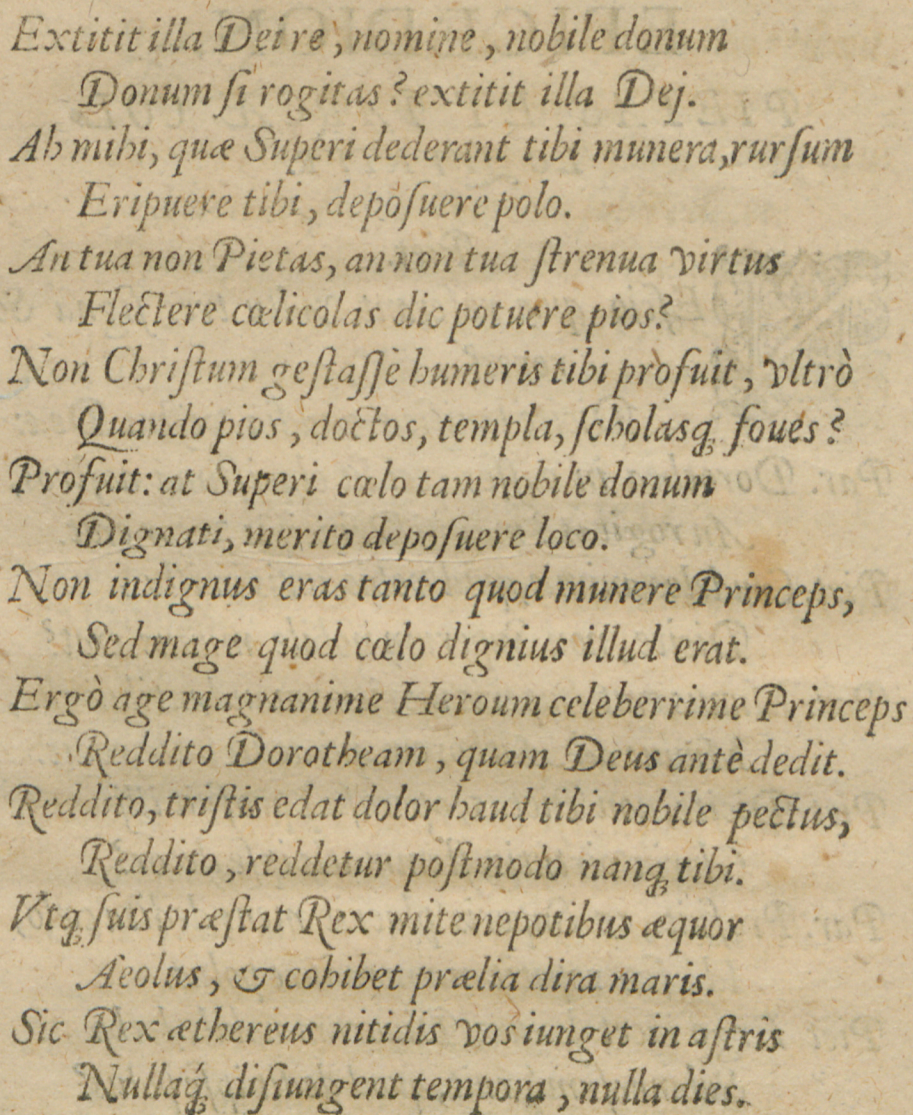 Extitit illa Dei re, nomine, nobile donum
Donum ſi rogitas? extitit illa Dej.
Ah mihi, quæ Superi dederant tibi munera, rurſum
Eripuere tibi, depoſuere polo.
An tua non Pietas, an non tua ſtrenua virtus
Flectere cœlicolas dic potuére pios?
Non Chriſtum geſtaſſe humeris tibi profuit, vltrò
Quando pios, doctos, templa, ſcholasq́; foues?
Profuit: at Superi cœlo tam nobile donum
Dignati, merito depoſuere loco.
Non indignus eras tanto quod munere Princeps,
Sed mage quod cœlo dignius illud erat.
Ergò age magnanime Heroum celeberrime Princeps
Reddito Dorotheam, quam Deus antè dedit.
Reddito, triſtis edat dolor haud tibi nobile pectus,
Reddito, reddetur poſtmodo nanq; tibi.
Vtq; ſuis præſtat Rex mite nepotibus æquor
Aeolus, & cohibet prælia dira maris.
Sic Rex æthereus nitidis vos iunget in aſtris
Nullaq́; diſiungent tempora, nulla dies.